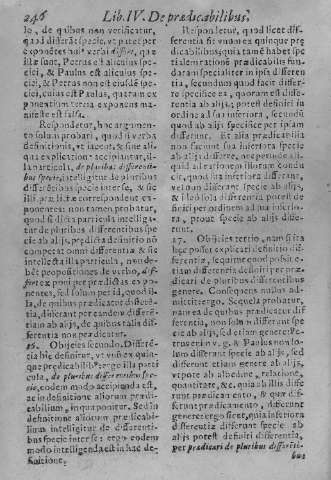 246 Lib. IV. De prædicabilibus.
lo, de quibus non verificatur,
quod differāt specie, vt patet per
exponētes huius verbi differt, quæ
ista sunt, & Petrus est alicuius speciei,
& Paulus est alicuius speciei,
& Petrus non est eiusdē speciei,
cuius est Paulus, quarum exponentium
tertia exponens manifeste
est falsa.
Respondetur, hoc argumentum
solum probari, quod si verba
definitionis, vt iacent, & sine aliqua
explicatione accipiuntur, illa
particula, de pluribus differentibus
specie, intelligitur de pluribus
differentibus specie inter se, & sic
illi particulæ correspondent exponentes:
non tamen probatur,
quod si dicta particula intelligatur
de pluribus differentibus specie
ab alijs, prædicta definitio nō
competat omni differentiæ & sic
intellecta illa particula, non debēt
propositiones de verbo, differt
exponi per prædictas exponentes,
sed solum per id, quod illa,
de quibus prædicatur differētia,
differant per eandem differentiam
ab alijs, de quibus talis differentia
non prædicatur.
26. Objicies secundo. Differētia
hic definitur, vt vnū ex quinque
prædicabilib. ergo illa particula,
de pluribus differentibus specie,
eodem modo accipienda est,
ac in definitione aliorum prædicabilium,
in qua ponitur. Sed in
definitione aliorum prædicabilium
intelligitur de differentibus
specie inter se: ergo eodem
modo intelligenda est in hac definitione.
Respondetur, quod licet differentia
sit vnum ex quinque prædicabilibus;
quia tamē habet specialem
rationem prædicabilis fundatam
specialiter in ipsis differentijs,
secundum quod habet differre
specifice ea, quorum est differentia
ab alijs: potest definiri in
ordine ad sua inferiora, secundū
quod ab alijs specifice per ipsam
differunt. Et alia prædicabilia
non faciunt sua inferiora specie
differre ab alijs: vnde nō est
eadem ratio de ipsis illorum conditio,
quod sua inferiora differāt,
vel non differant specie ab alijs,
& ideo sola differentia potest definiri
per ordinem ad sua inferiora,
prout specie ab alijs differunt.
27. Objicies tertio, nam si ita
hæc posset explicari definitio differentiæ,
sequitur quod possit etiam
differentia definiri per prædicari
de pluribus differentibus
genere. Consequens nullus admittit:
ergo. Sequela probatur,
nam ea de quibus prædicatur differentia,
non solum differunt specie
ab alijs, sed etiam genere: Petrus
enim v. g. & Paulus non solum
differunt specie ab alijs, sed
differunt etiam genere ab alijs,
vtpote ab albedine, relatione,
quantitate, &c. quia ab illis differunt
prædicamento, differunt
genere: ergo sicut, quia inferiora
differentiæ differunt specie ab
alijs potest definiri differentia,
per prædicari de pluribus differenti-
bus